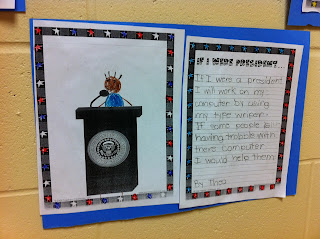 IF I WERE PRESIDENT...
If I were a president
I will work on my
computer by using
my type writer.
If some people
having trouble with
there computer
I would help them.
By